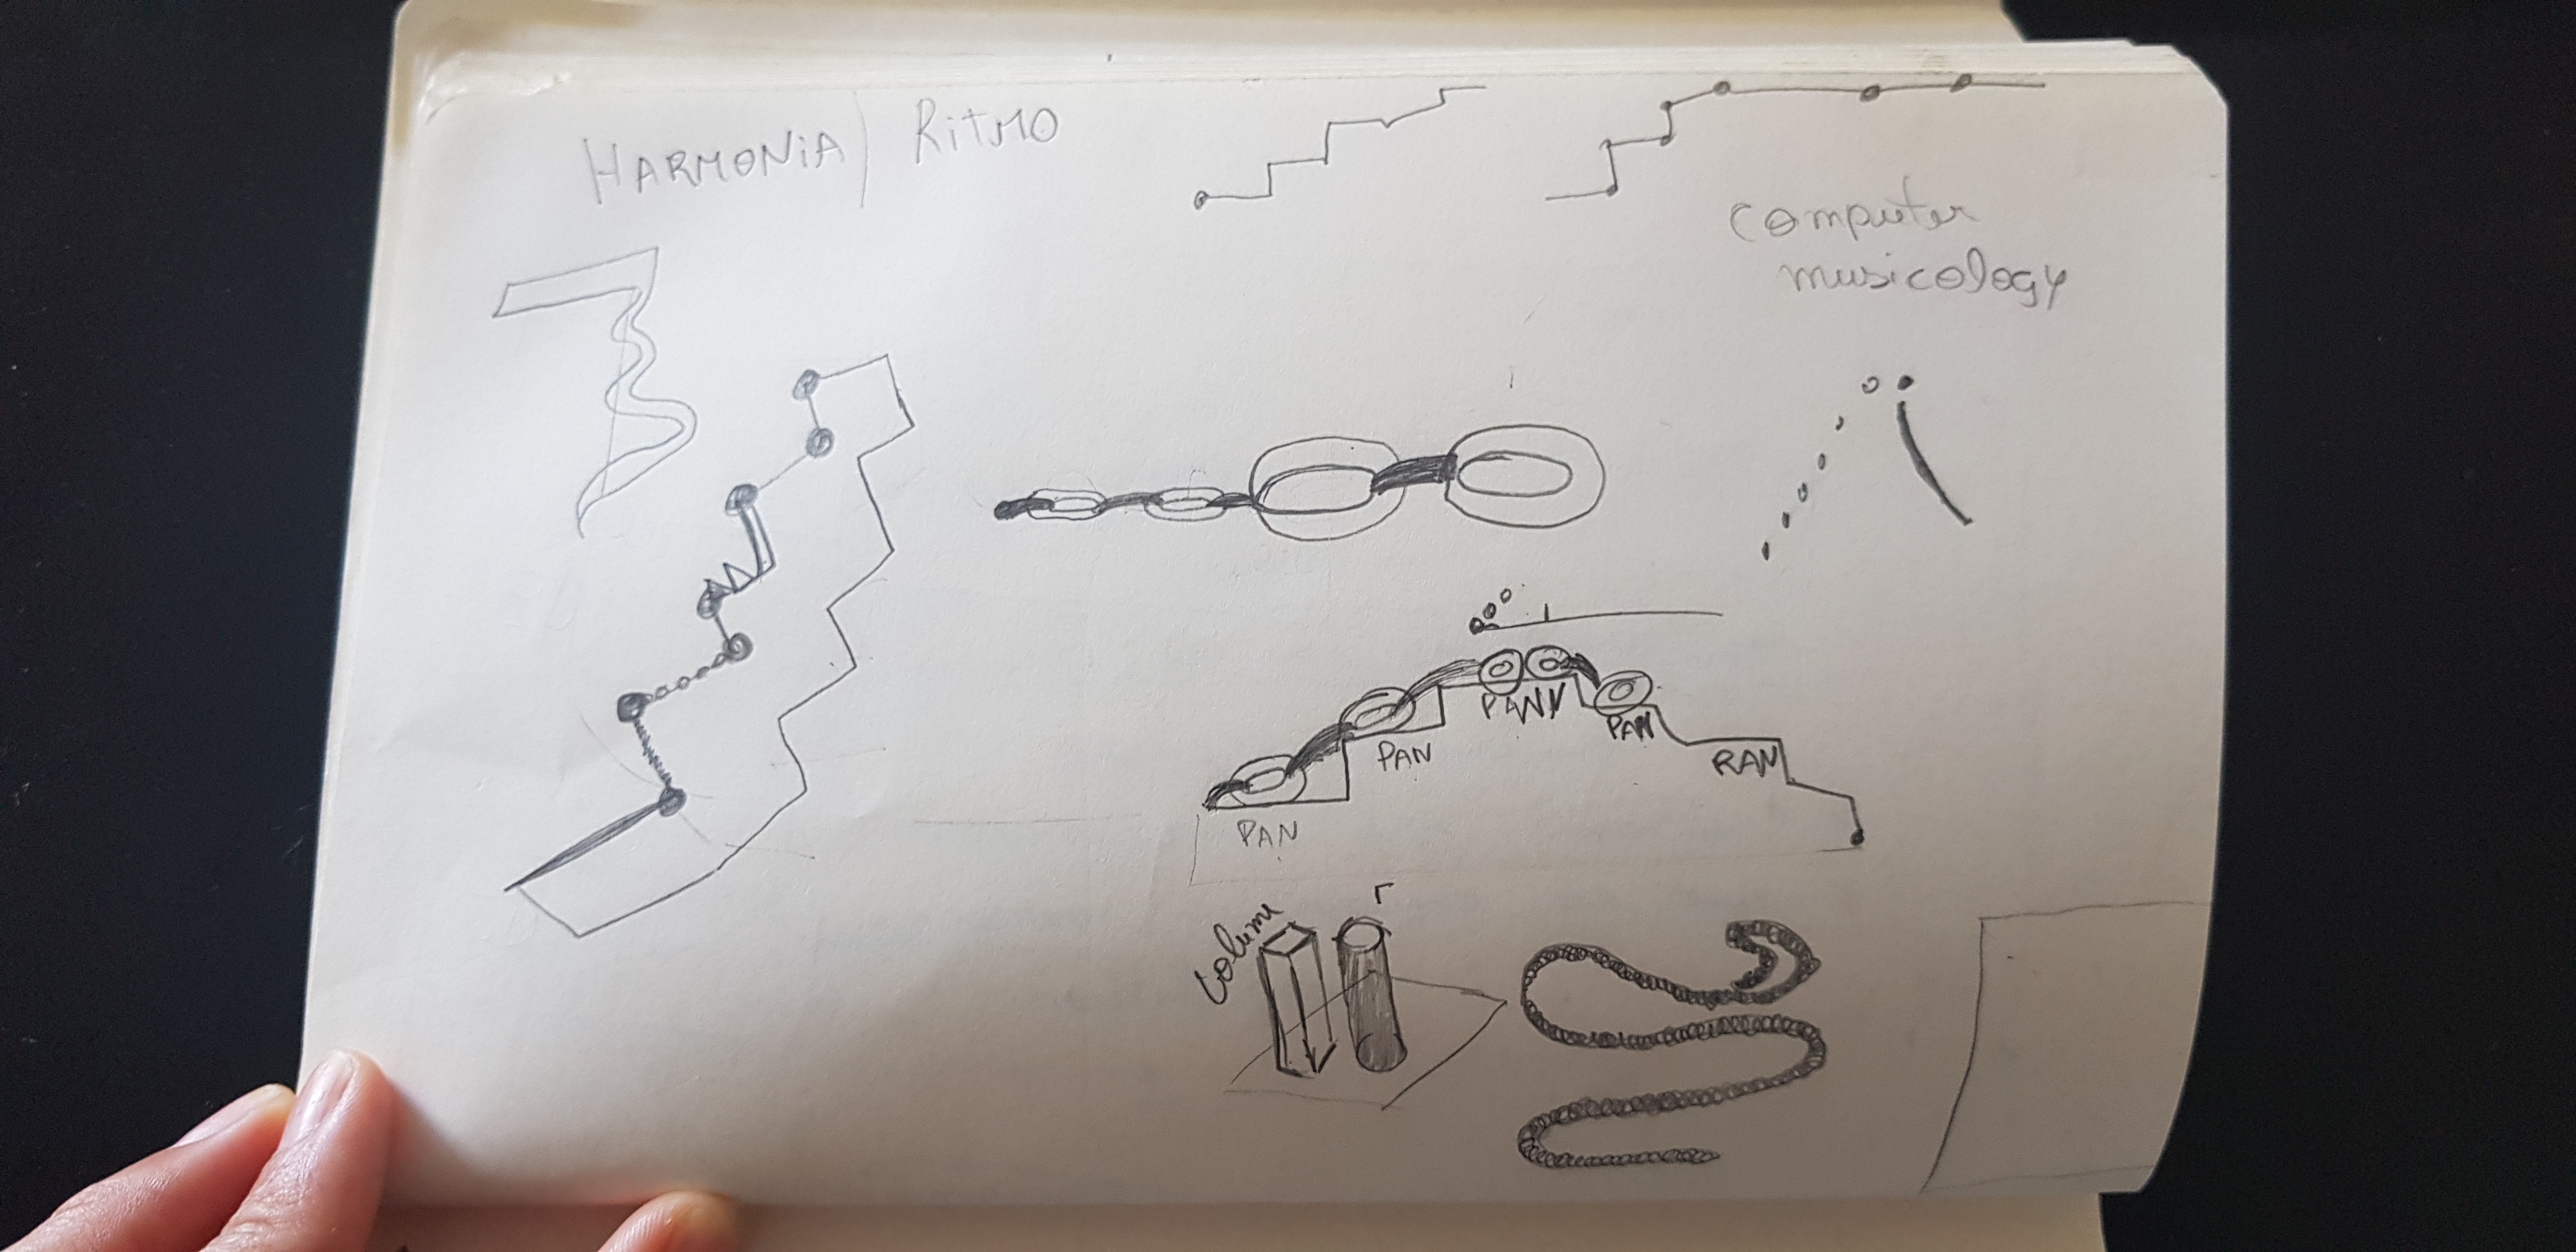 HARMONiA/ RitMO
computer
musicology
PANN
PAN
PAN
RAN
PAN
Volume
r